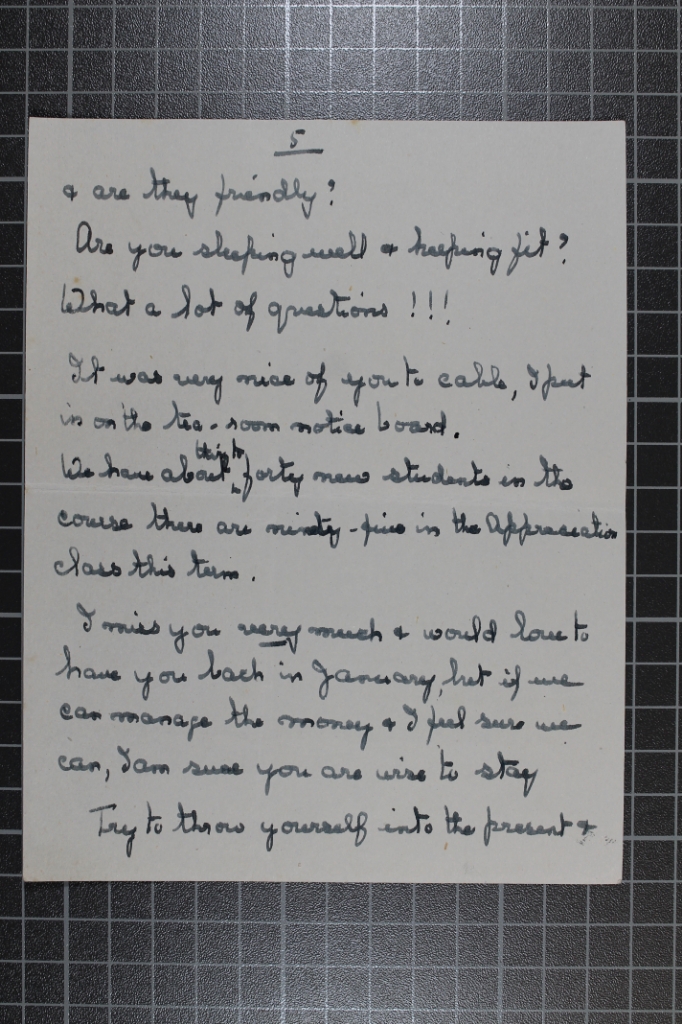 5
& are they friendly?
Are you sleeping well & keeping fit?
What a lot of questions !!!
It was very nice of you to cable, I put
in on the tea-room notice board.
thirty to
We have about forty new students in the
course there are ninety-five in the Appreciation
class this term.
I miss you very much & would love to
have you back in January, but if we
can manage the money & I feel sure we
can, I am sure you are wise to stay
Try to throw yourself into the present &